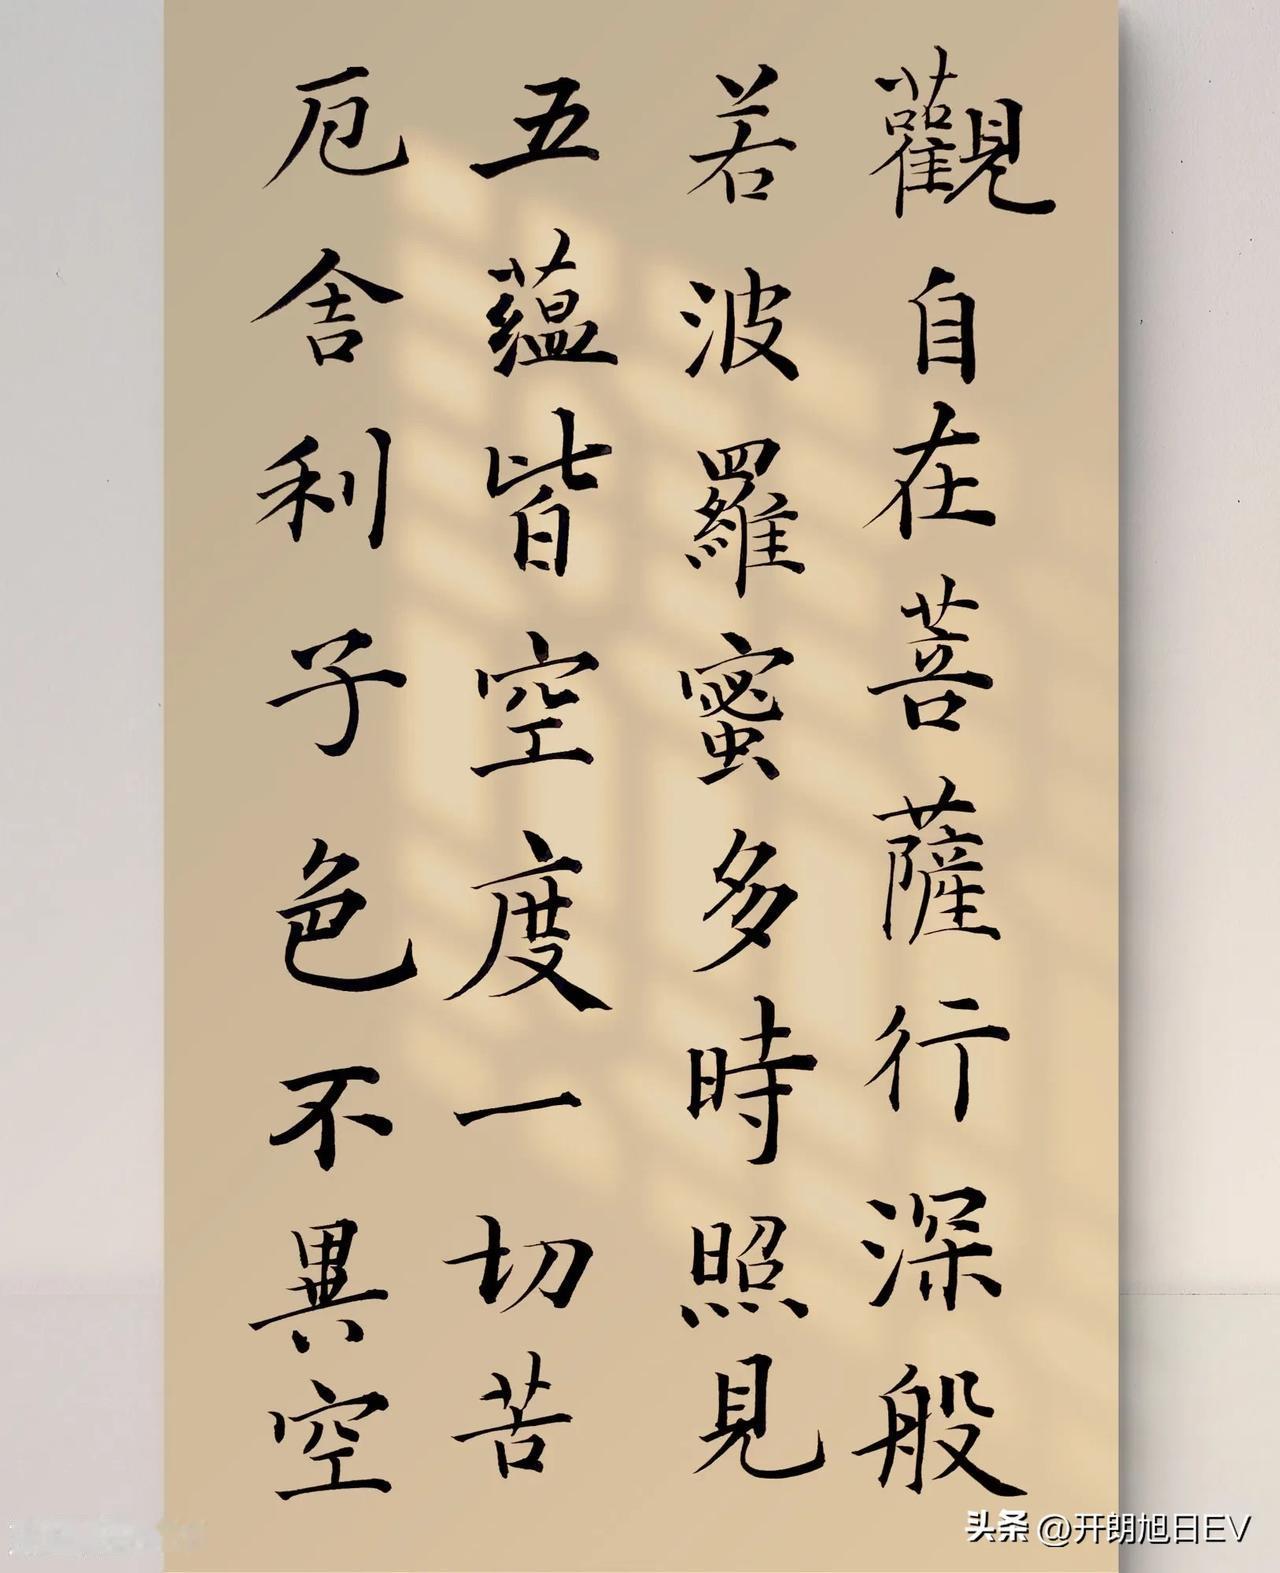 觀自在菩薩行深般
若波羅蜜多時照見
五蘊皆空度一切苦
厄舍利子色不異空
头条 @开朗旭日EV